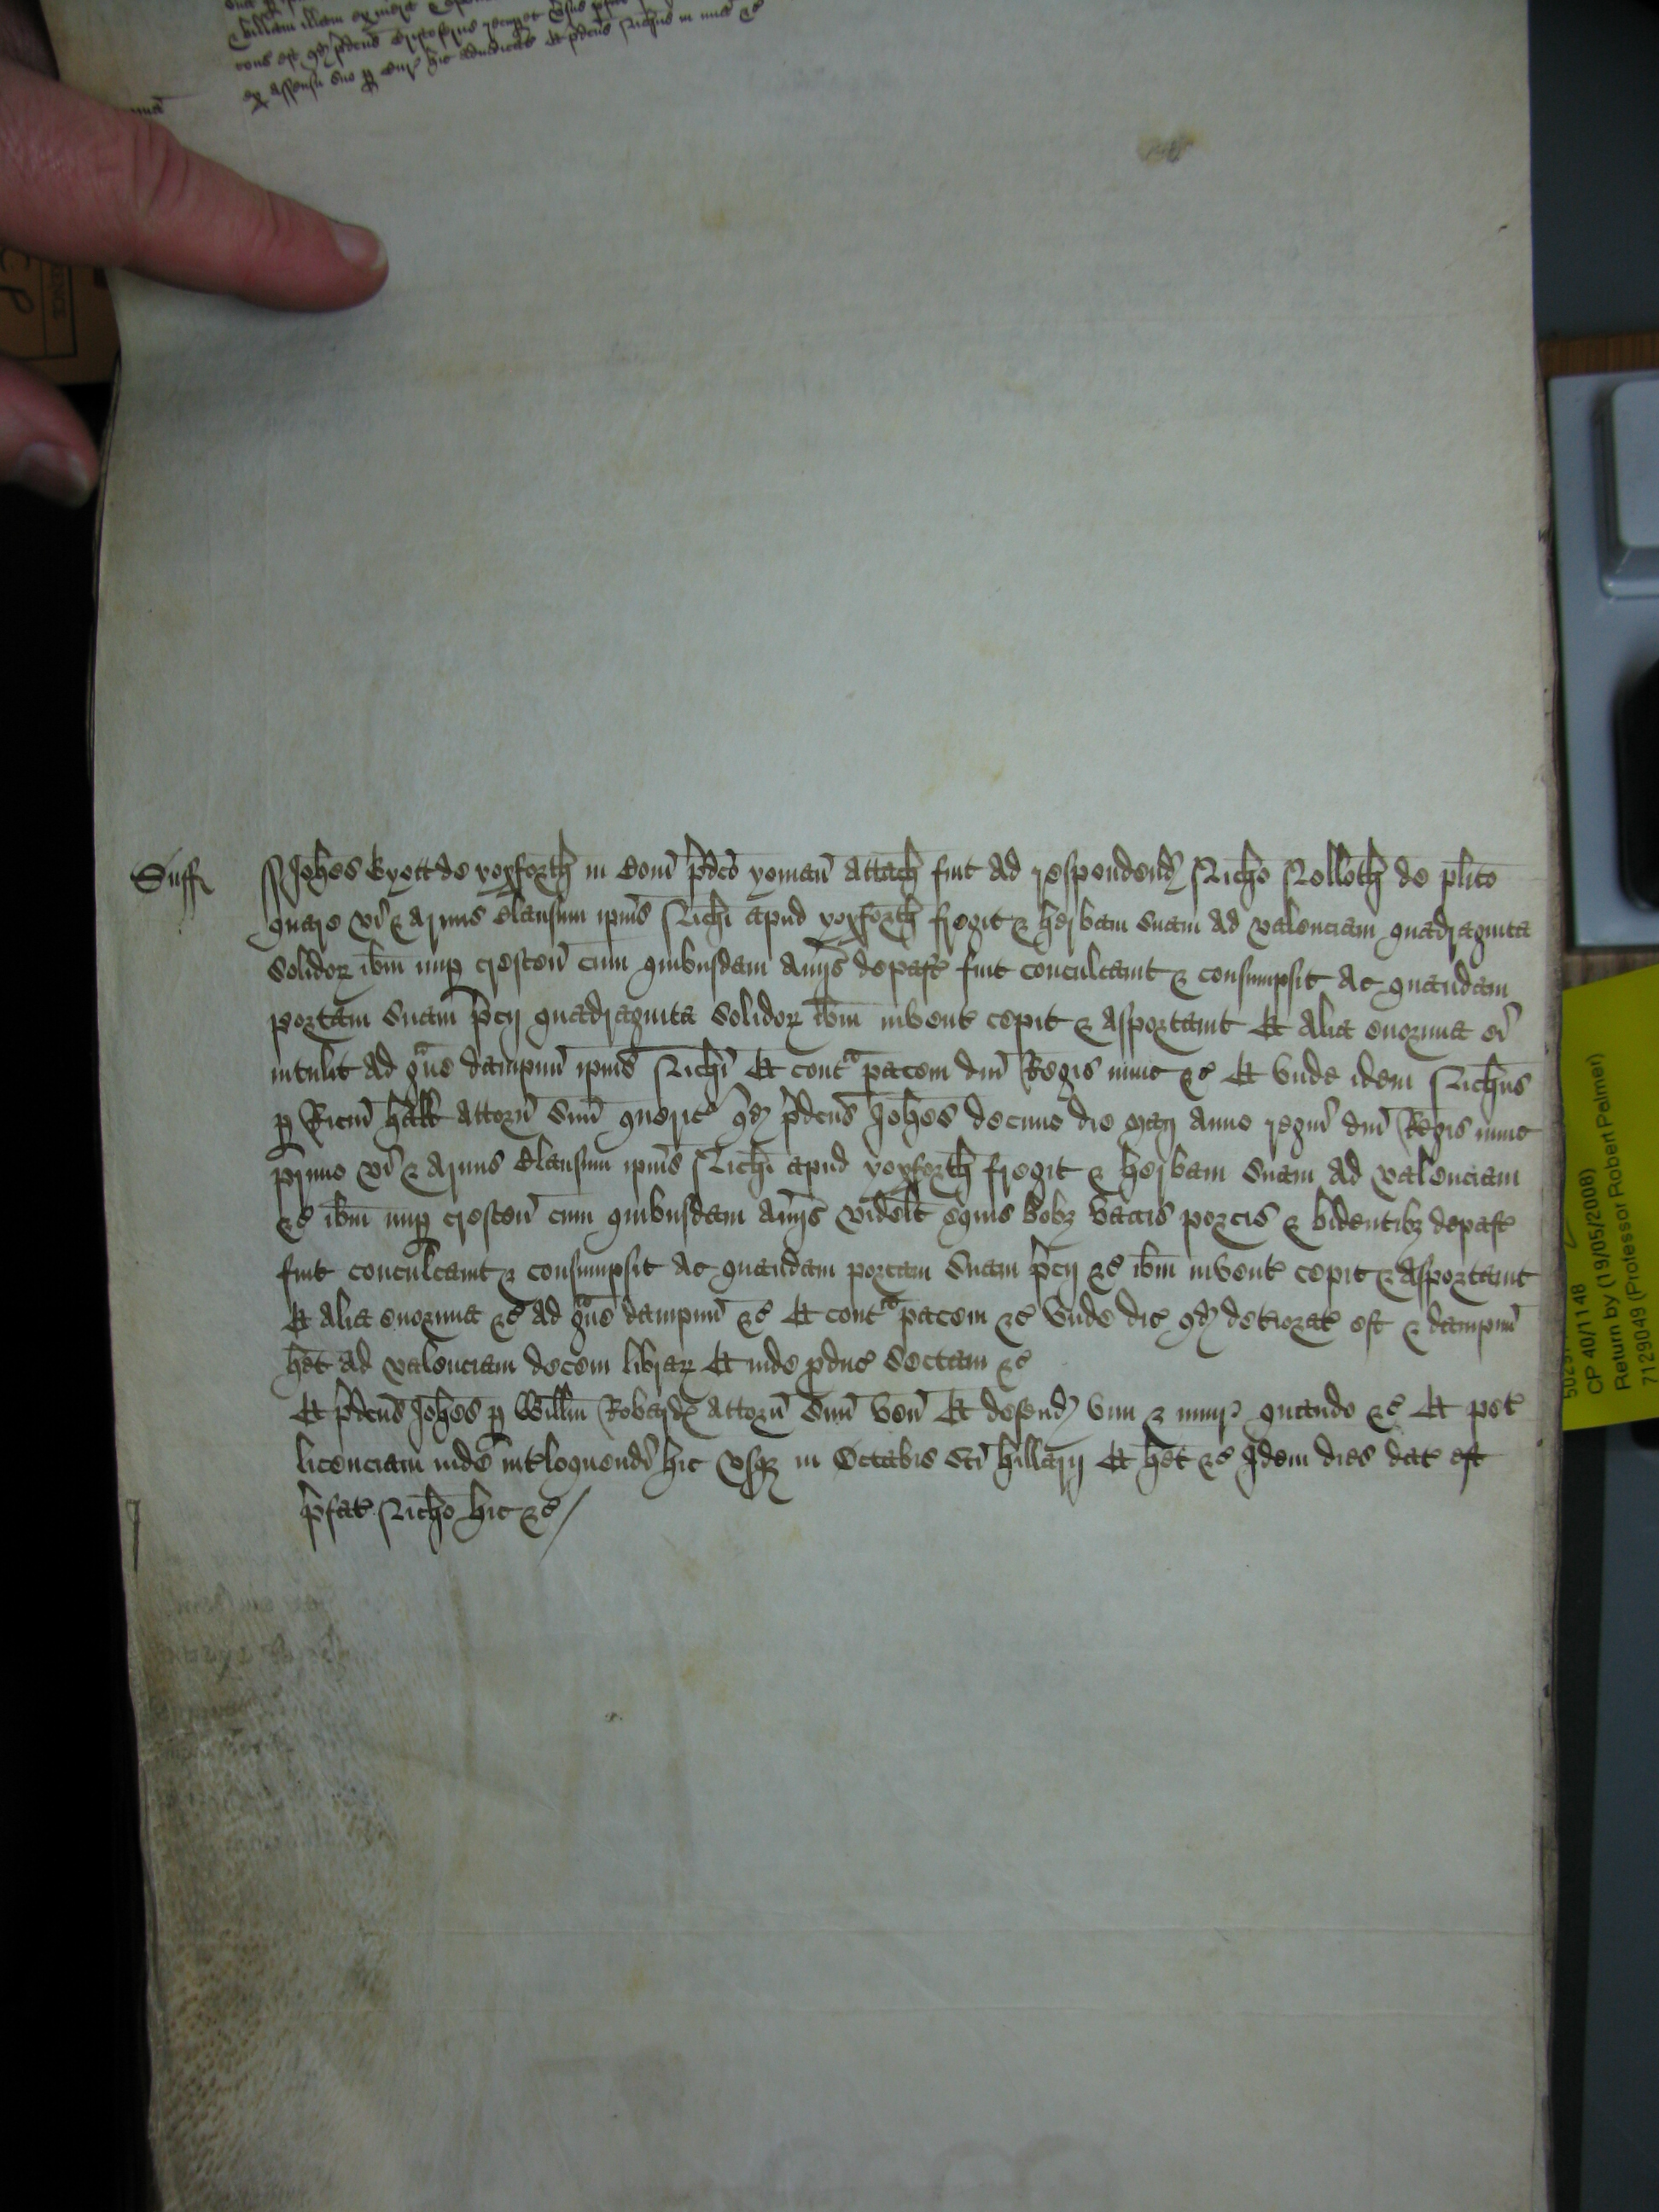 ex assensu suo p
Suff
Johes Kyett de yoxforth in Com pdco yoman attach fuit ad respondend Nicho Nolloth de plito
quare vi & armis clausum ipius Nichi apud yoxforth fregit & herbam suam ad valenciam quadraginta
solidor ibm nup crescen cum quibusdam aviis depast fuit conculcavit & consumpsit Ac quandam
portam suam pcij quadraginta solidor ibm invent cepit & asportavit Et alia enormia ei
intulit ad gve dampnu ipius Nichi Et contra pacem dni Regis nunc &c Et unde idem Nichus
p Ricm Hall attorn suu querit qd pdcus Johes decimo die Maij anno regni dni Regis nunc
primo vi & armis clausum ipius Nichi apud yoxforth fregit & herbam suam ad valenciam
&c ibm nup crescen cum quibusdam aviis videlt equis bobz vaccis porcis & bidentibz depast
fuit conculcavit & consumpsit Ac quandam portam suam pcij &c ibm invent cepit & asportavit
Et alia enormia &c ad gve dampnu &c Et contra pacem &c unde dic qd deteriorat est & dampnu
het ad valenciam decem librar Et inde pduc sectam &c
Et pdcus Johes p Willm Roberdz attorn suu ven Et defend vim & iniur quando &c Et pet
licenciam inde intloquendi hic usqz in Octabis sci Hillarij Et het &c Idem dies dat est
pfat Nicho hic &c /
CP 40/1148
Return by (19/05/2008)
7129049 (Professor Robert Palmer)